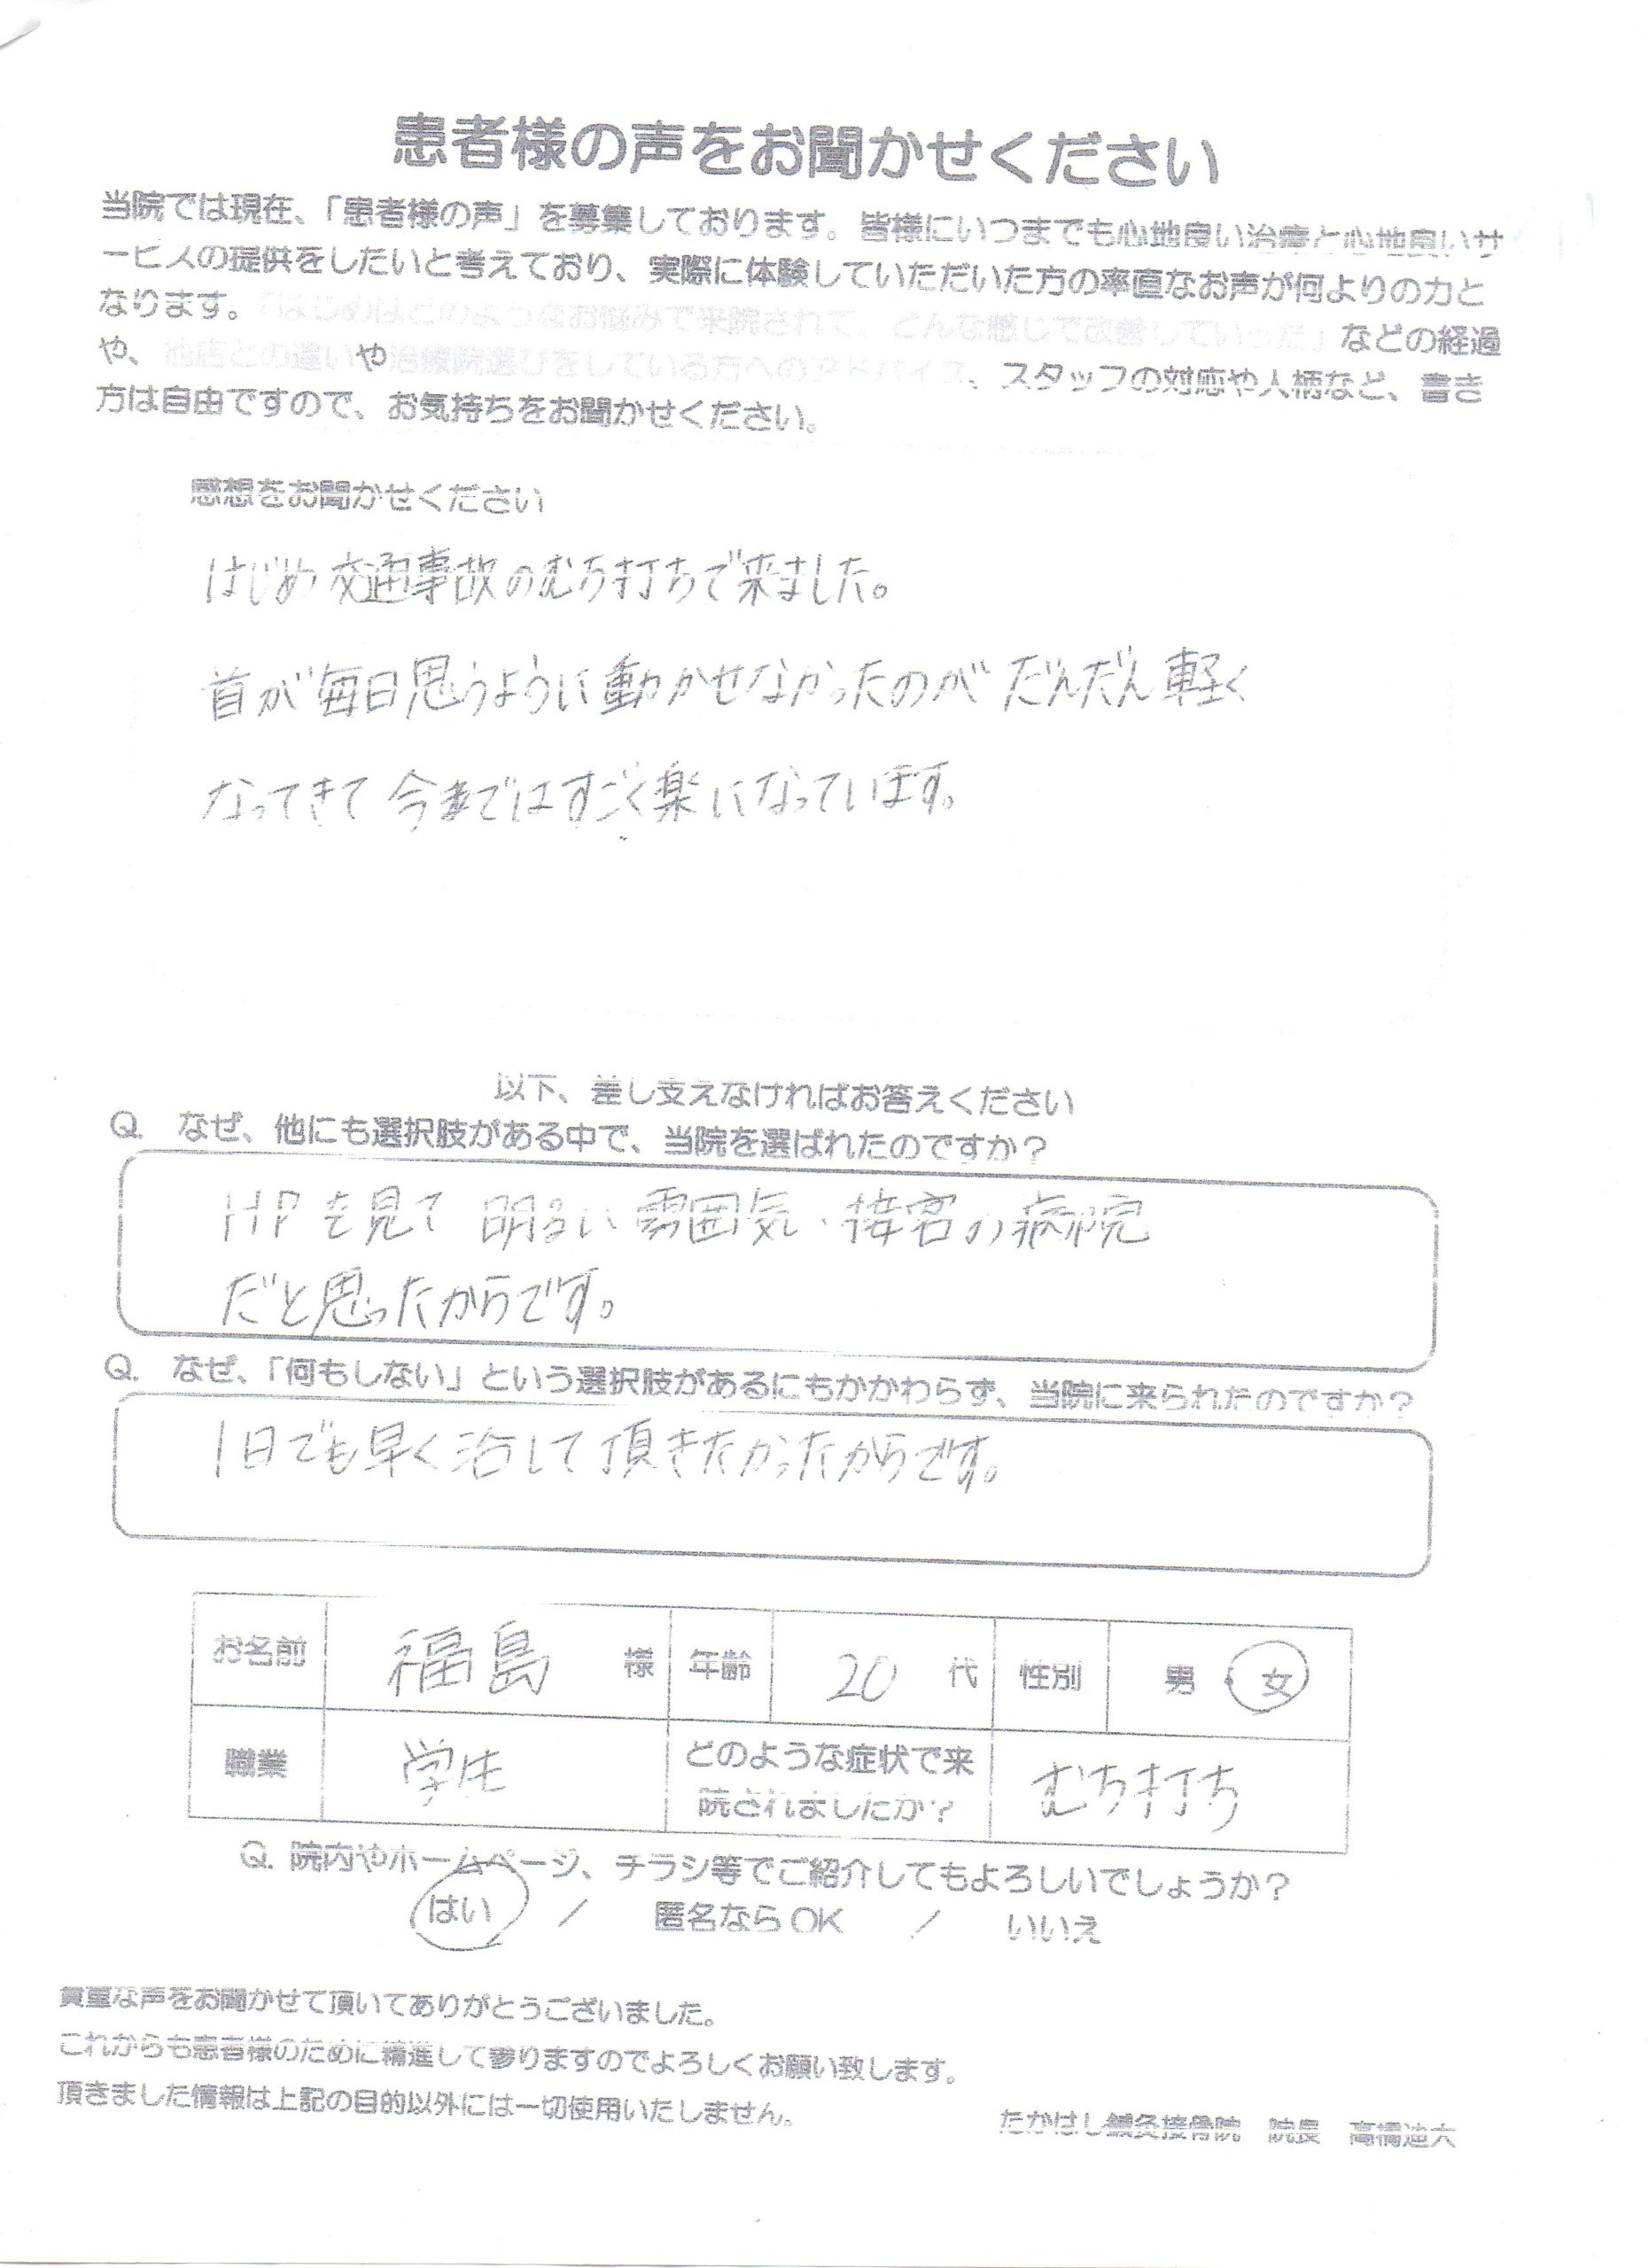 患者様の声をお聞かせください
当院では現在、「患者様の声」を募集しております。皆様にいつまでも心地良い治療と心地良いサ
ービスの提供をしたいと考えており、実際に体験していただいた方の率直なお声が何よりの力と
なります。「はじめはどのようなお悩みで来院されて、どんな感じで改善していった」などの経過
や、他店との違いや治療院選びをしている方へのアドバイス、スタッフの対応や人柄など、書き
方は自由ですので、お気持ちをお聞かせください。
感想をお聞かせください
はじめ交通事故のむち打ちで来ました。
首が毎日思うように動かせなかったのがだんだん軽く
なってきて今まではすごく楽になっています。
以下、差し支えなければお答えください
Q. なぜ、他にも選択肢がある中で、当院を選ばれたのですか?
HPを見て 明るい雰囲気、接客の病院
だと思ったからです。
Q. なぜ、「何もしない」という選択肢があるにもかかわらず、当院に来られたのですか?
1日でも早く治して頂きたかったからです。
お名前 福島 様 年齢 20 代 性別 男・女
職業 学生 どのような症状で来院されましたか? むち打ち
Q. 院内やホームページ、チラシ等でご紹介してもよろしいでしょうか?
はい / 匿名ならOK / いいえ
貴重な声をお聞かせて頂いてありがとうございました。
これからも患者様のために精進して参りますのでよろしくお願い致します。
頂きました情報は上記の目的以外には一切使用いたしません。
たかはし鍼灸接骨院 院長 高橋